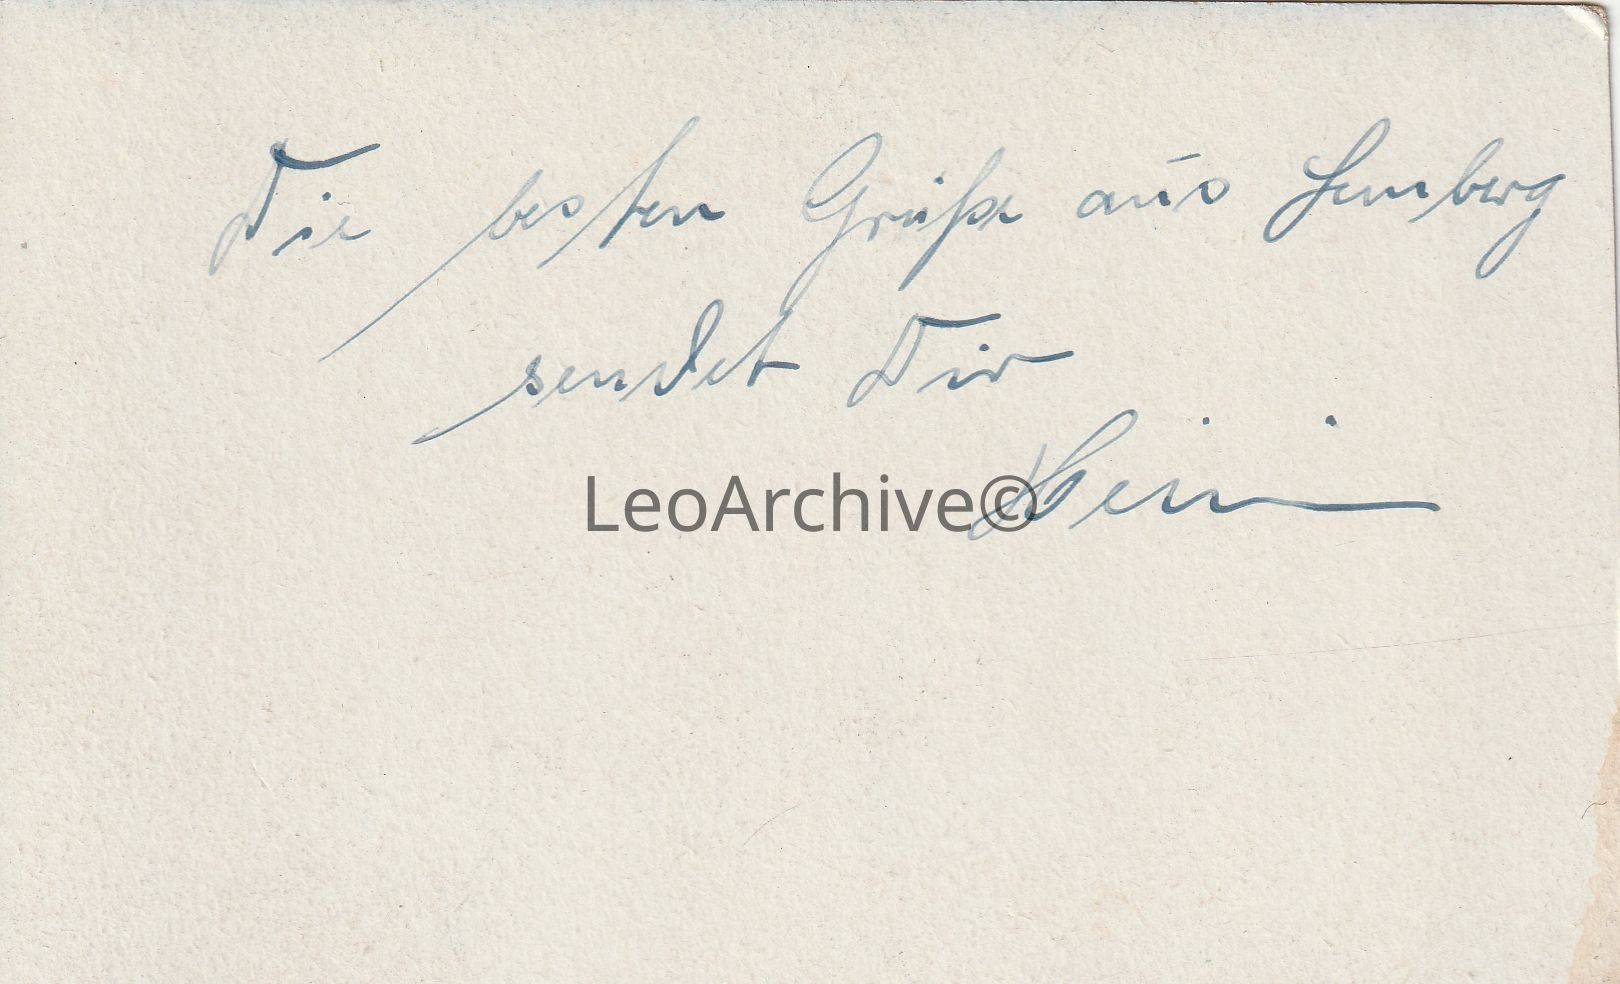 Die besten Grüße aus Lemberg
sendet Dir
Heini
LeoArchive©